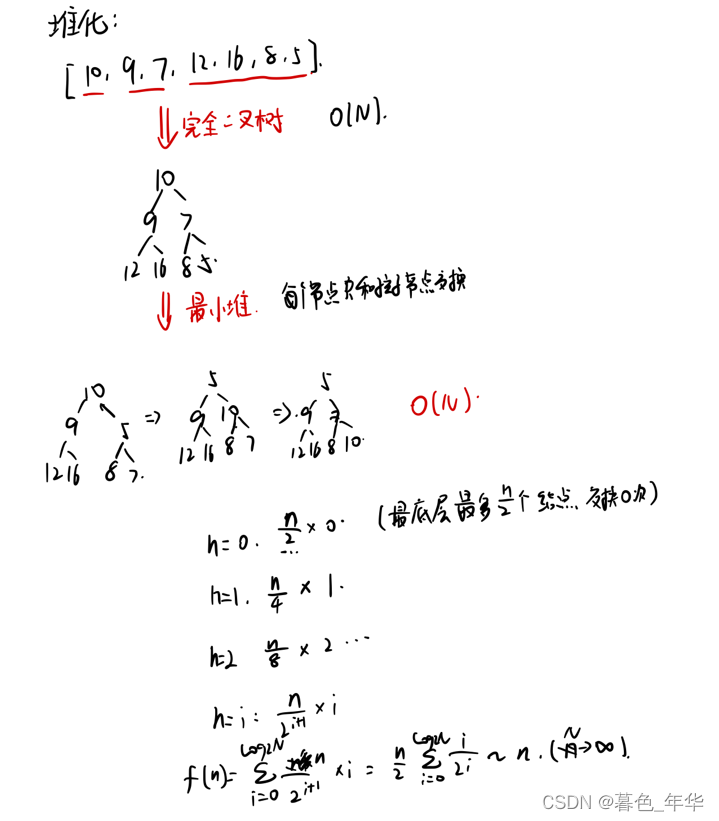 堆化:
[10, 9, 7, 12, 16, 8, 5].
完全二叉树 O(N).
10
9 7
12 16 8 5.
最小堆. 每个节点只和孩子节点交换
10 5 5
9 5 => 9 10 => 9 7 O(N).
12 16 8 7. 12 16 8 7 12 16 8 10.
h=0. n/2 × 0. (最底层最多 n/2 个结点, 交换0次)
...
h=1. n/4 × 1.
h=2 n/8 × 2 ...
h=i: n/2^{i+1} × i
f(n)= ∑_{i=0}^{log2N} n/2^{i+1} × i = n/2 ∑_{i=0}^{log2N} i/2^i ~ n. (N→∞).
CSDN @暮色_年华